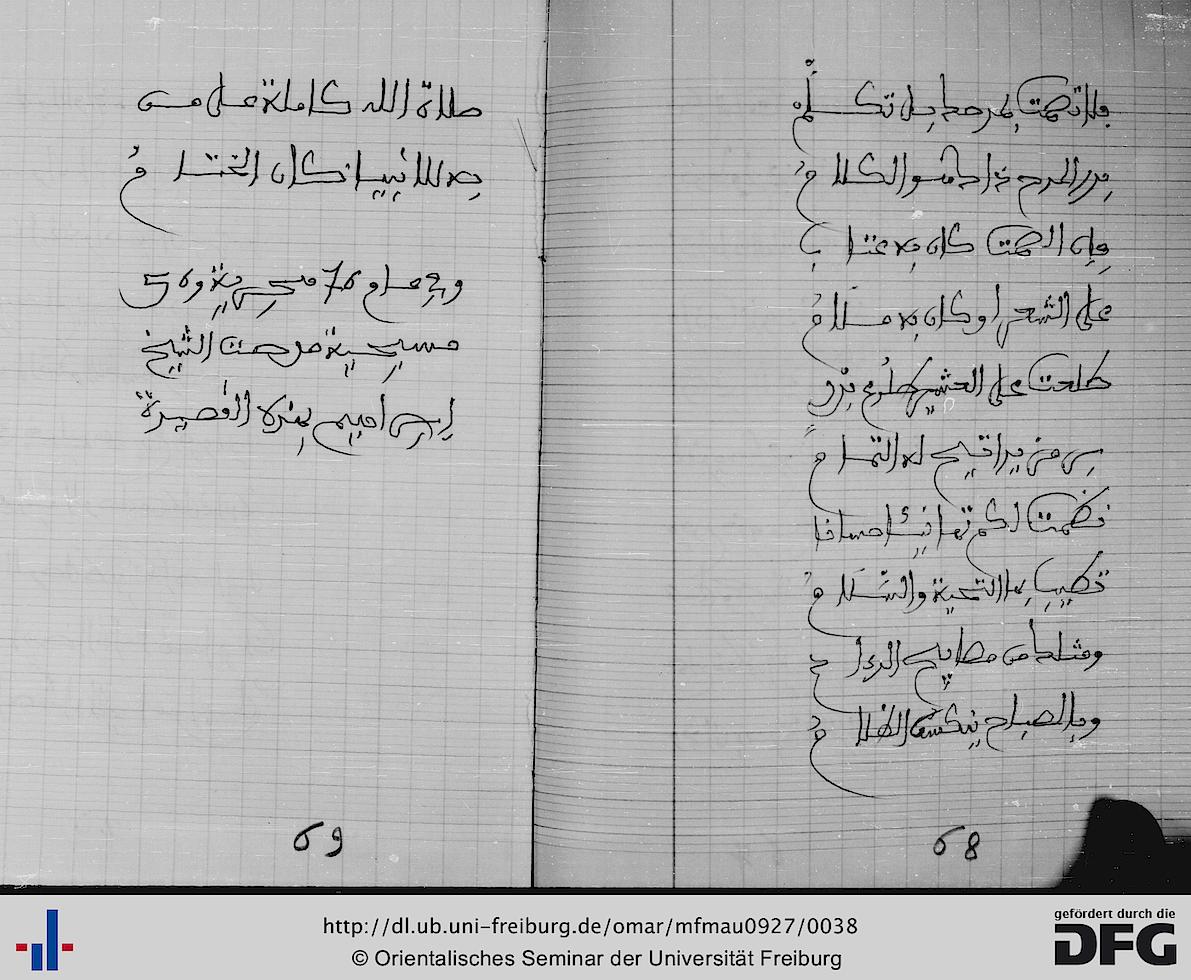 فلا تصمت لمدحها بل تكلم
فدر المدح الكلام
فإن الصمت كان به عتاب
على الشعرا وكان به ملام
طلعت على العشير طلوع بدر
اتيح له التمام
نظمت لكم تهانئا حسانا
تطيب بها التحية والسلام
من مصابيح
وبالصباح ينكشف الظلام
68
صلاة الله كاملة على من
به للانبيا كان الختام
وفي عام 76 هجرية و 56
مسيحية مدحت الشيخ
ابراهيم بهذه القصيدة
69
http://dl.ub.uni-freiburg.de/omar/mfmau0927/0038
© Orientalisches Seminar der Universität Freiburg
gefördert durch die
DFG